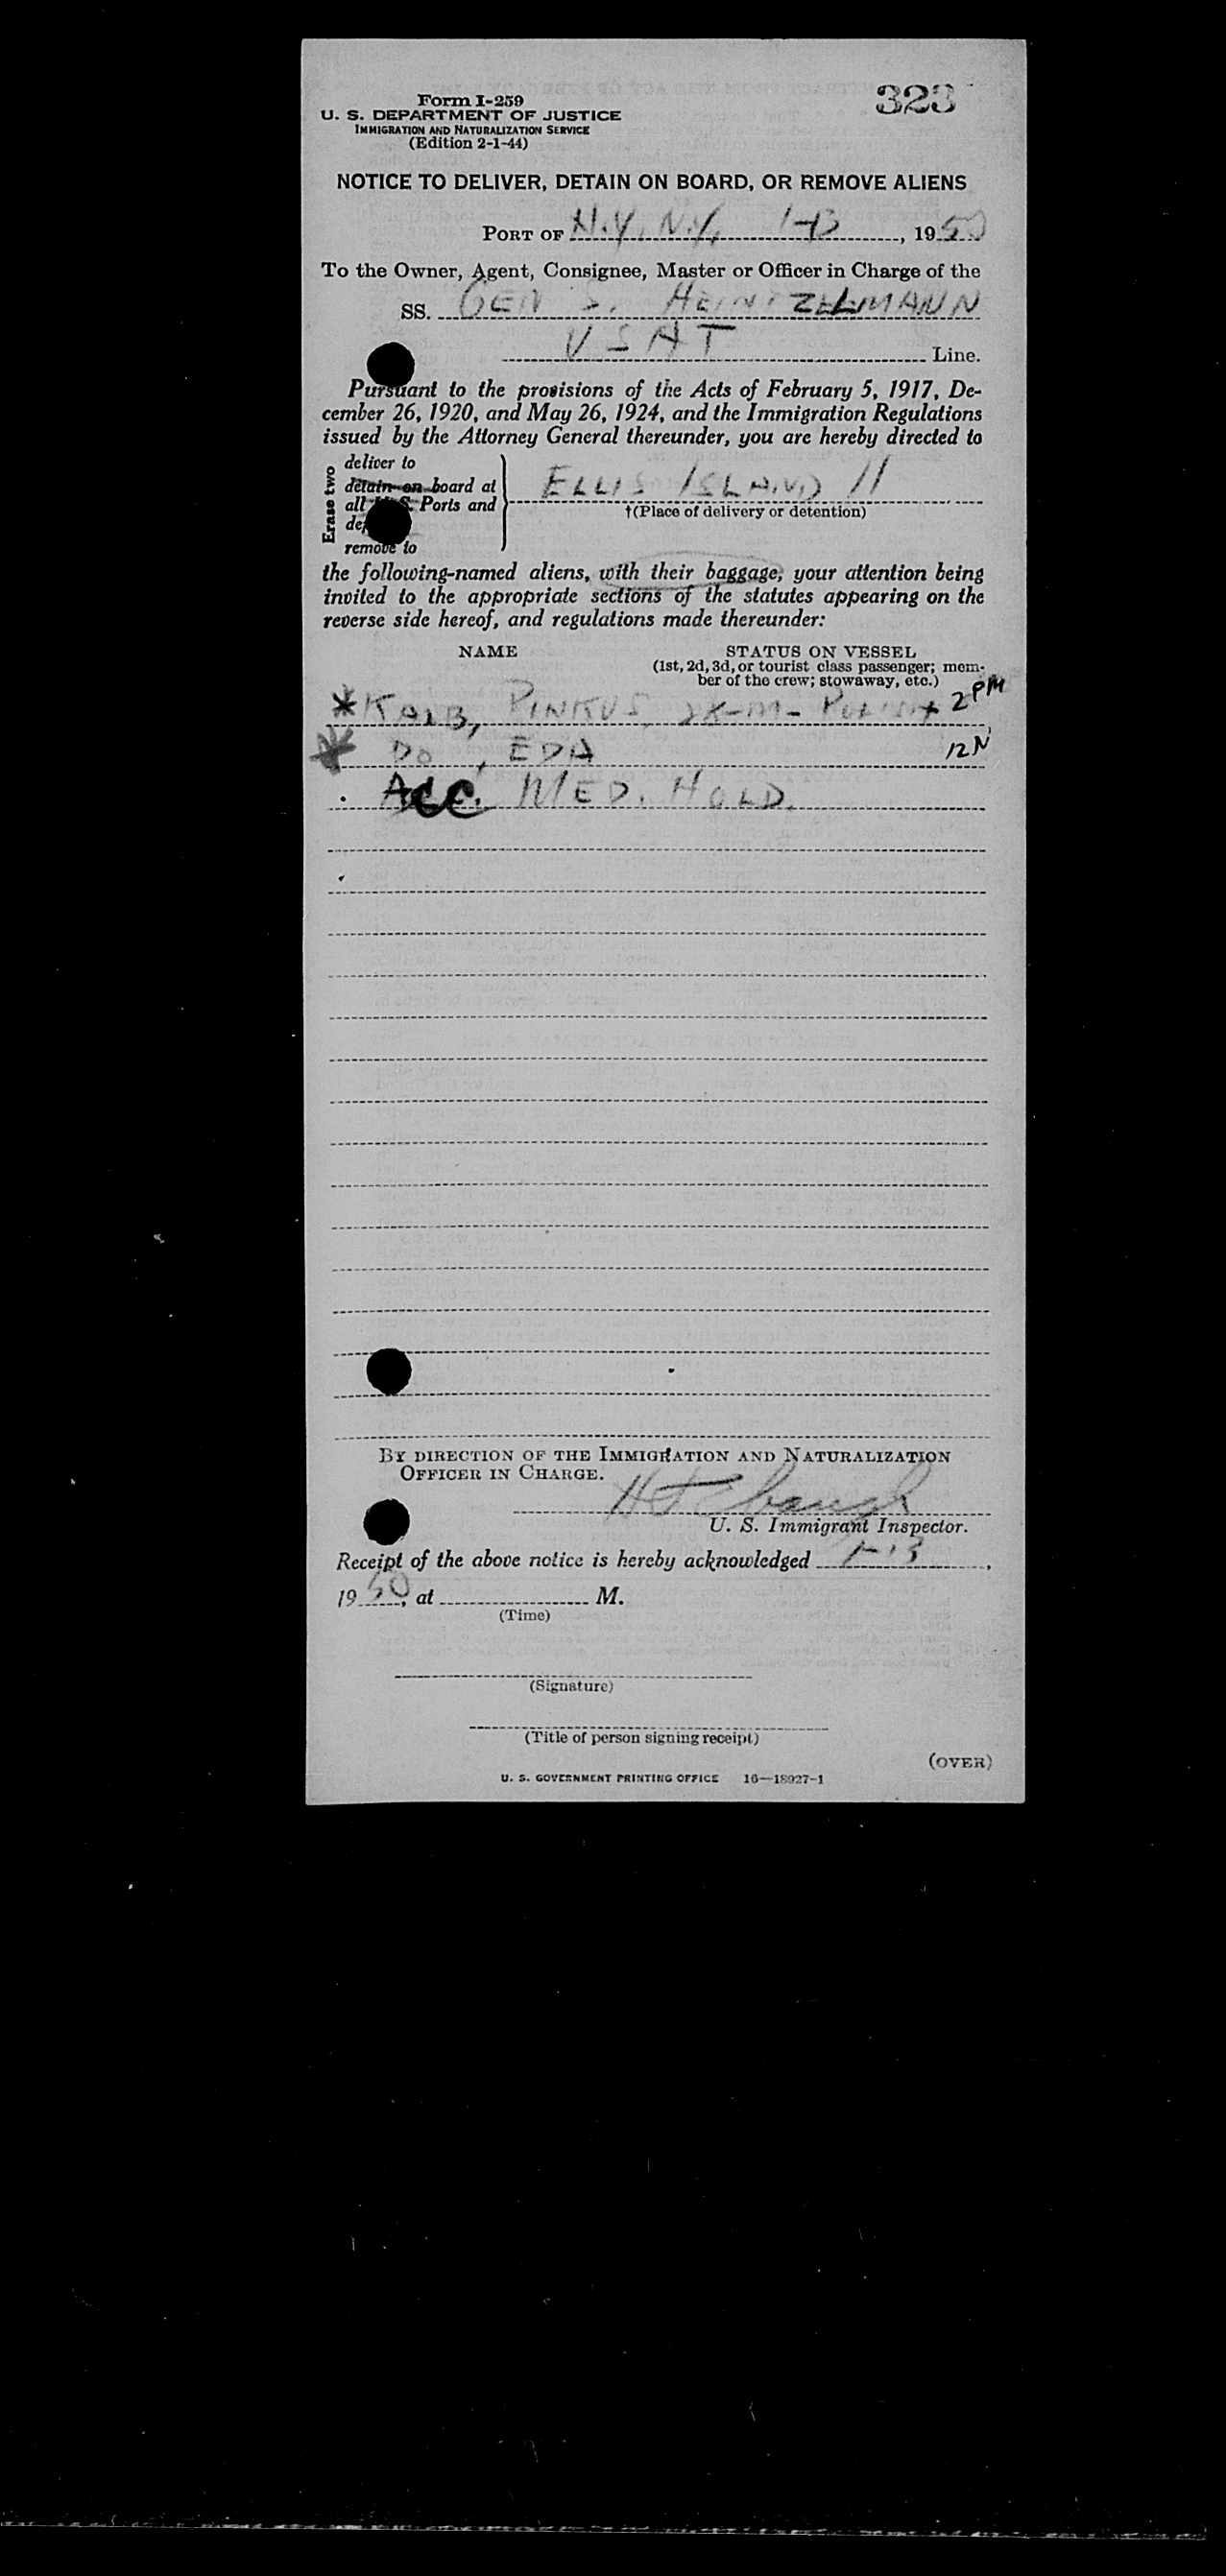 323
Form I-259
U. S. DEPARTMENT OF JUSTICE
IMMIGRATION AND NATURALIZATION SERVICE
(Edition 2-1-44)
NOTICE TO DELIVER, DETAIN ON BOARD, OR REMOVE ALIENS
PORT OF N.Y. N.Y. 1-13, 1950
To the Owner, Agent, Consignee, Master or Officer in Charge of the
SS. GEN S. HEINTZELMANN
USAT Line.
Pursuant to the provisions of the Acts of February 5, 1917, De-
cember 26, 1920, and May 26, 1924, and the Immigration Regulations
issued by the Attorney General thereunder, you are hereby directed to
Erase two
deliver to
detain on board at
all Ports and
remove to
ELLIS ISLAND 11
†(Place of delivery or detention)
the following-named aliens, with their baggage, your attention being
invited to the appropriate sections of the statutes appearing on the
reverse side hereof, and regulations made thereunder:
NAME STATUS ON VESSEL
(1st, 2d, 3d, or tourist class passenger; mem-
ber of the crew; stowaway, etc.)
*KALB, PINKUS, M- POLISH 2 PM
* DO, EDA 12 N
ACC. MED. HOLD.
BY DIRECTION OF THE IMMIGRATION AND NATURALIZATION
OFFICER IN CHARGE.
U. S. Immigrant Inspector.
Receipt of the above notice is hereby acknowledged 1-13,
1950, at M.
(Time)
(Signature)
(Title of person signing receipt)
(OVER)
U. S. GOVERNMENT PRINTING OFFICE 16—18927-1